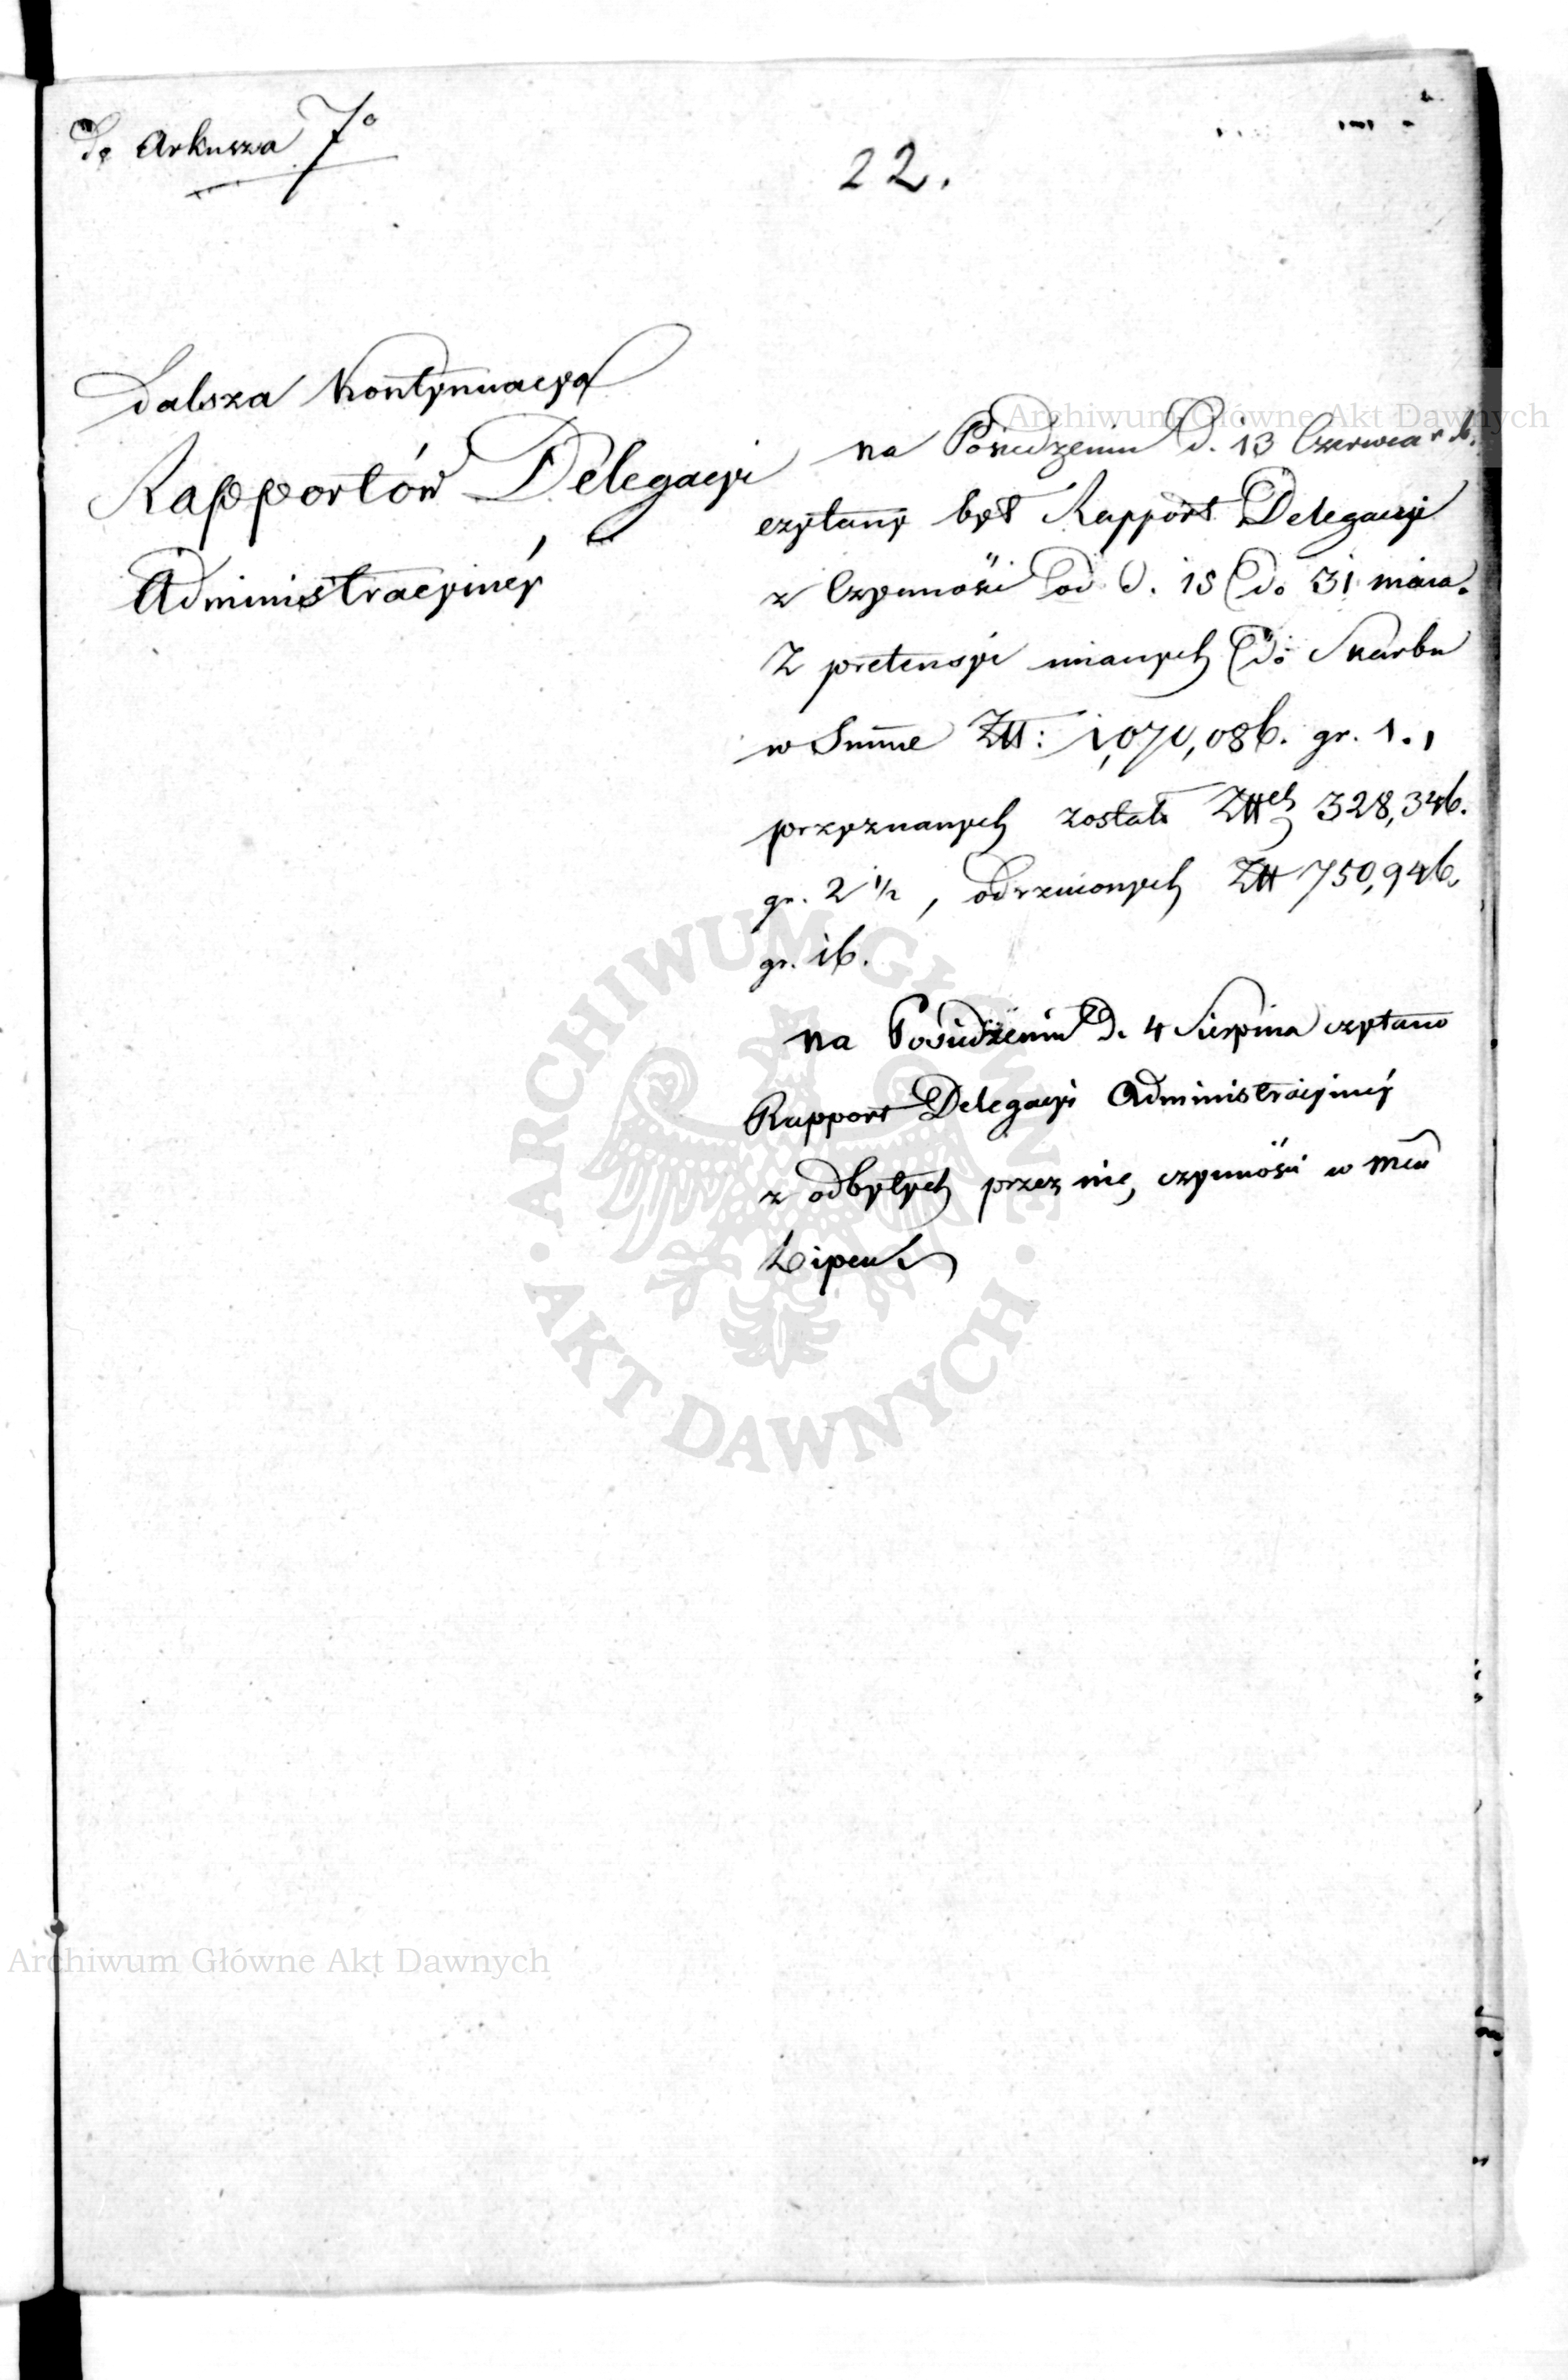 do Arkusza 7º
22.
Dalsza Kontynuacya
Rapportów Delegacyi
Administracyiney
na Posiedzeniu D. 13 Czerwca r. b.
czytany był Rapport Delegacyi
z Czynności od d. 15 do 31 maia.
Z pretensyi mianych do Skarbu
w Summie Złł:
przyznanych został Złłch 328,346.
gr. 2 ½, odrzuconych Złł 750,946.
gr. 16.
na Posiedzeniu D. 4 Sierpnia czytano
Rapport Delegacyi Administracyiney
z odbytych przez nię czynności w Mcu
Lipcu
Archiwum Główne Akt Dawnych
ARCHIWUM GŁÓWNE AKT DAWNYCH
Archiwum Główne Akt Dawnych